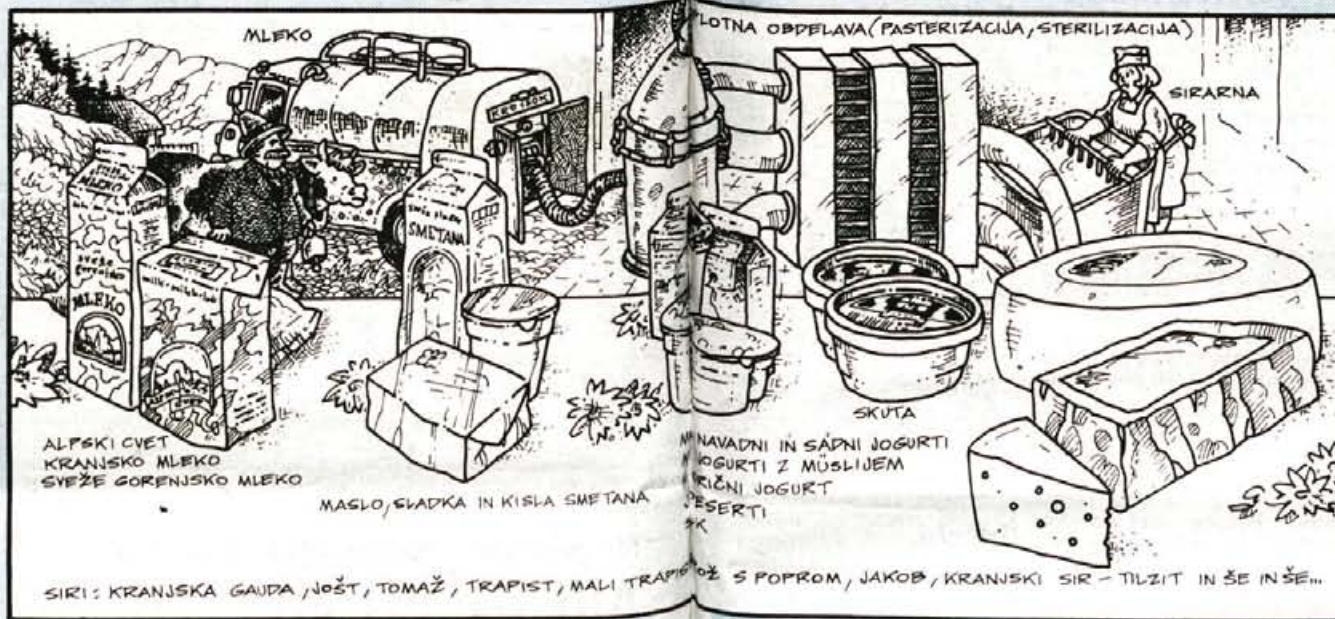 MLEKO
LOTNA OBDELAVA (PASTERIZACIJA, STERILIZACIJA)
SIRARNA
MLEKO
sveže
MLEKO
sveža sladka
SMETANA
ALPSKI CVET
KRANJSKO MLEKO
SVEŽE GORENJSKO MLEKO
MASLO, SLADKA IN KISLA SMETANA
SKUTA
NAVADNI IN SADNI JOGURTI
JOGURTI Z MÜSLIJEM
RIČNI JOGURT
ESERTI
SIRI: KRANJSKA GAUDA, JOŠT, TOMAŽ, TRAPIST, MALI TRAPIS OŽ S POPROM, JAKOB, KRANJSKI SIR - TILZIT IN ŠE IN ŠE...